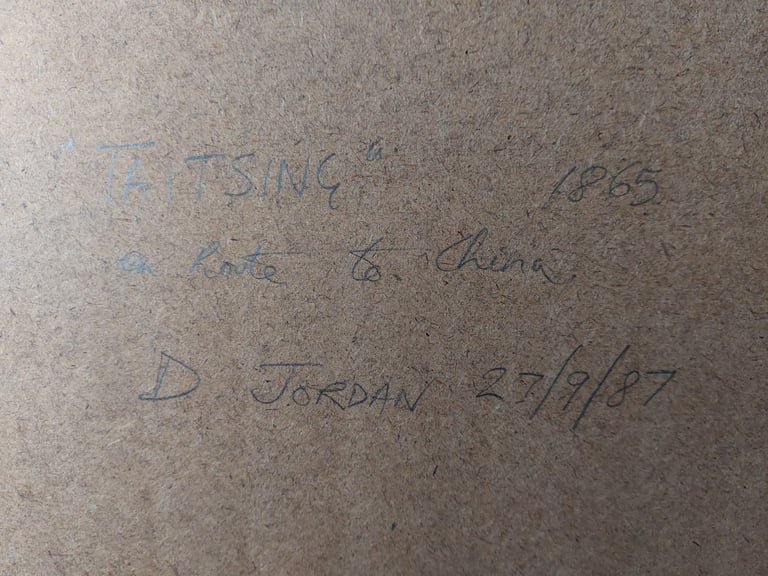 "TAITSING" 1865
en Route to China
D JORDAN 27/9/87